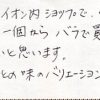 イオン内ショップで、
一個から バラで買
いと思います。
との味のバリエーション